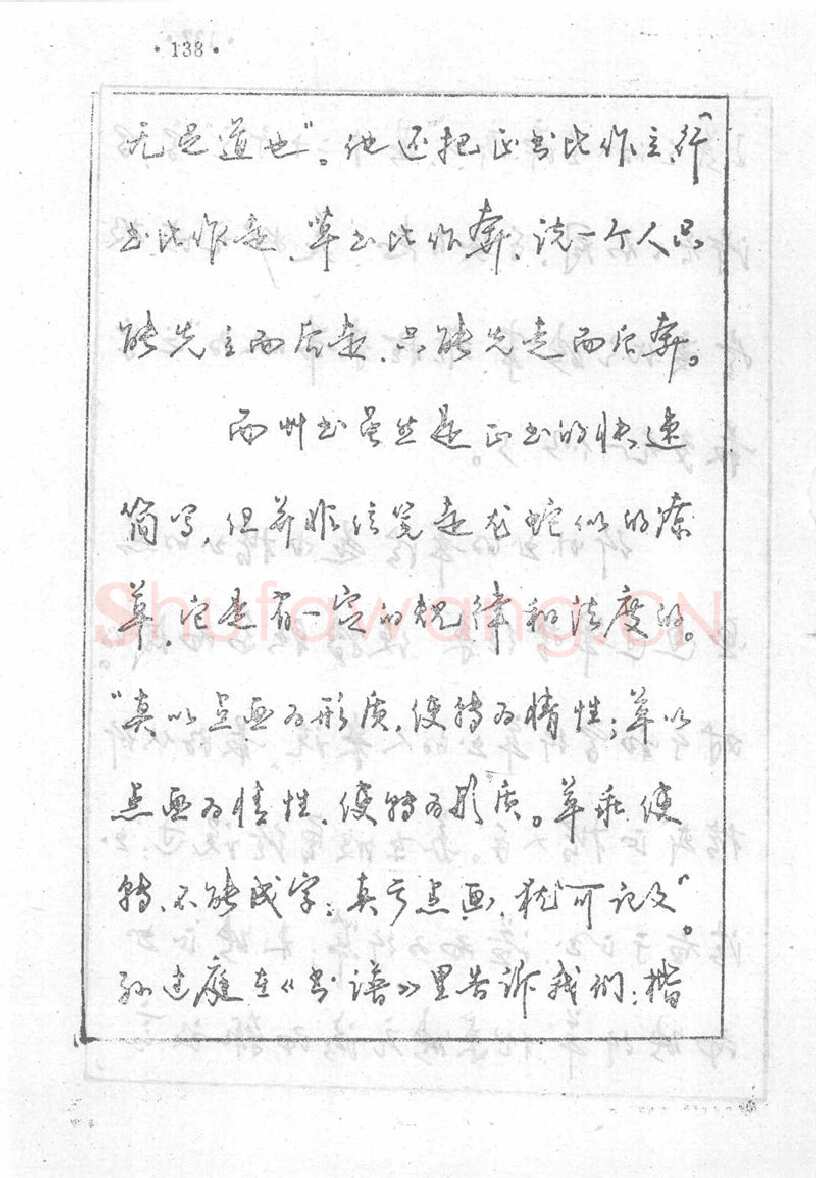 ·138·
无是道也”。他还把正书比作立，行
书比作走，草书比作奔，说一个人只
能先立而后走，只能先走而后奔。
而草书虽然是正书的快速
简写，但并非信笔走龙蛇似的潦
草，它是有一定的规律和法度的。
“真以点画为形质，使转为情性；草以
点画为情性，使转为形质。草乖使
转，不能成字；真亏点画，犹可记文”。
孙过庭在《书谱》里告诉我们：楷
Shufawang.CN